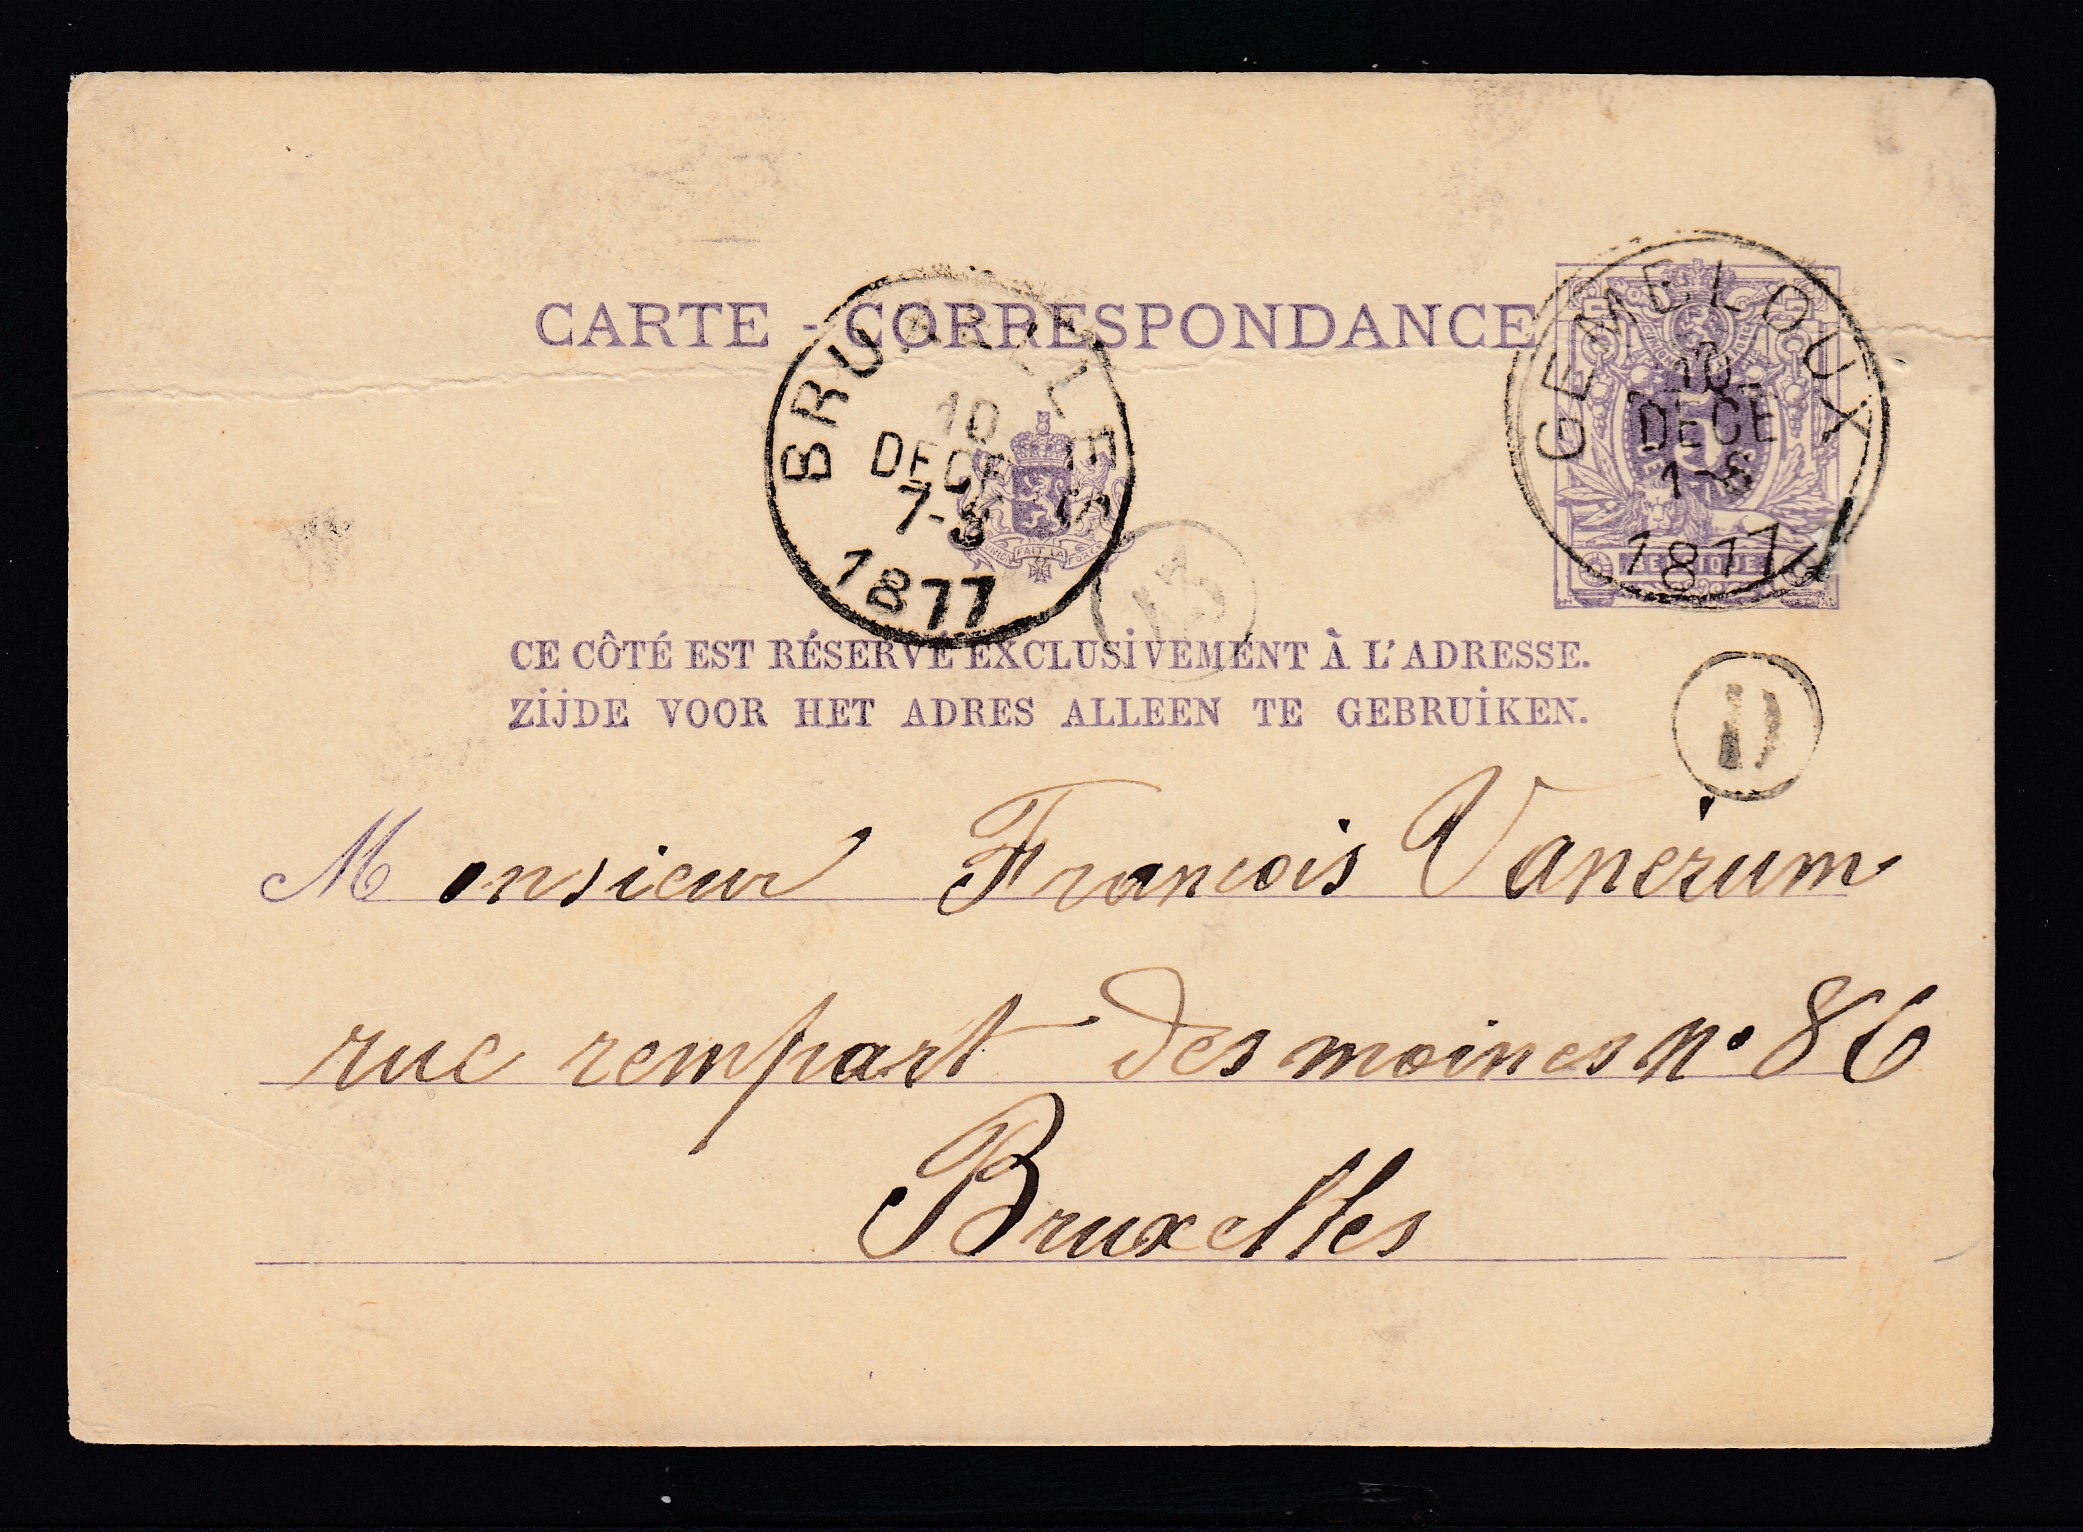 CARTE - CORRESPONDANCE
BRUXELLE
10
DECE
7-8
1877
UNION FAIT LA FORCE
GEMBLOUX
10
DECE
1-S
1877
5
BELGIQUE
CE CÔTÉ EST RÉSERVÉ EXCLUSIVEMENT À L'ADRESSE.
ZIJDE VOOR HET ADRES ALLEEN TE GEBRUIKEN.
D
Monsieur Francois Vanérum
rue rempart des moines n° 86
Bruxelles